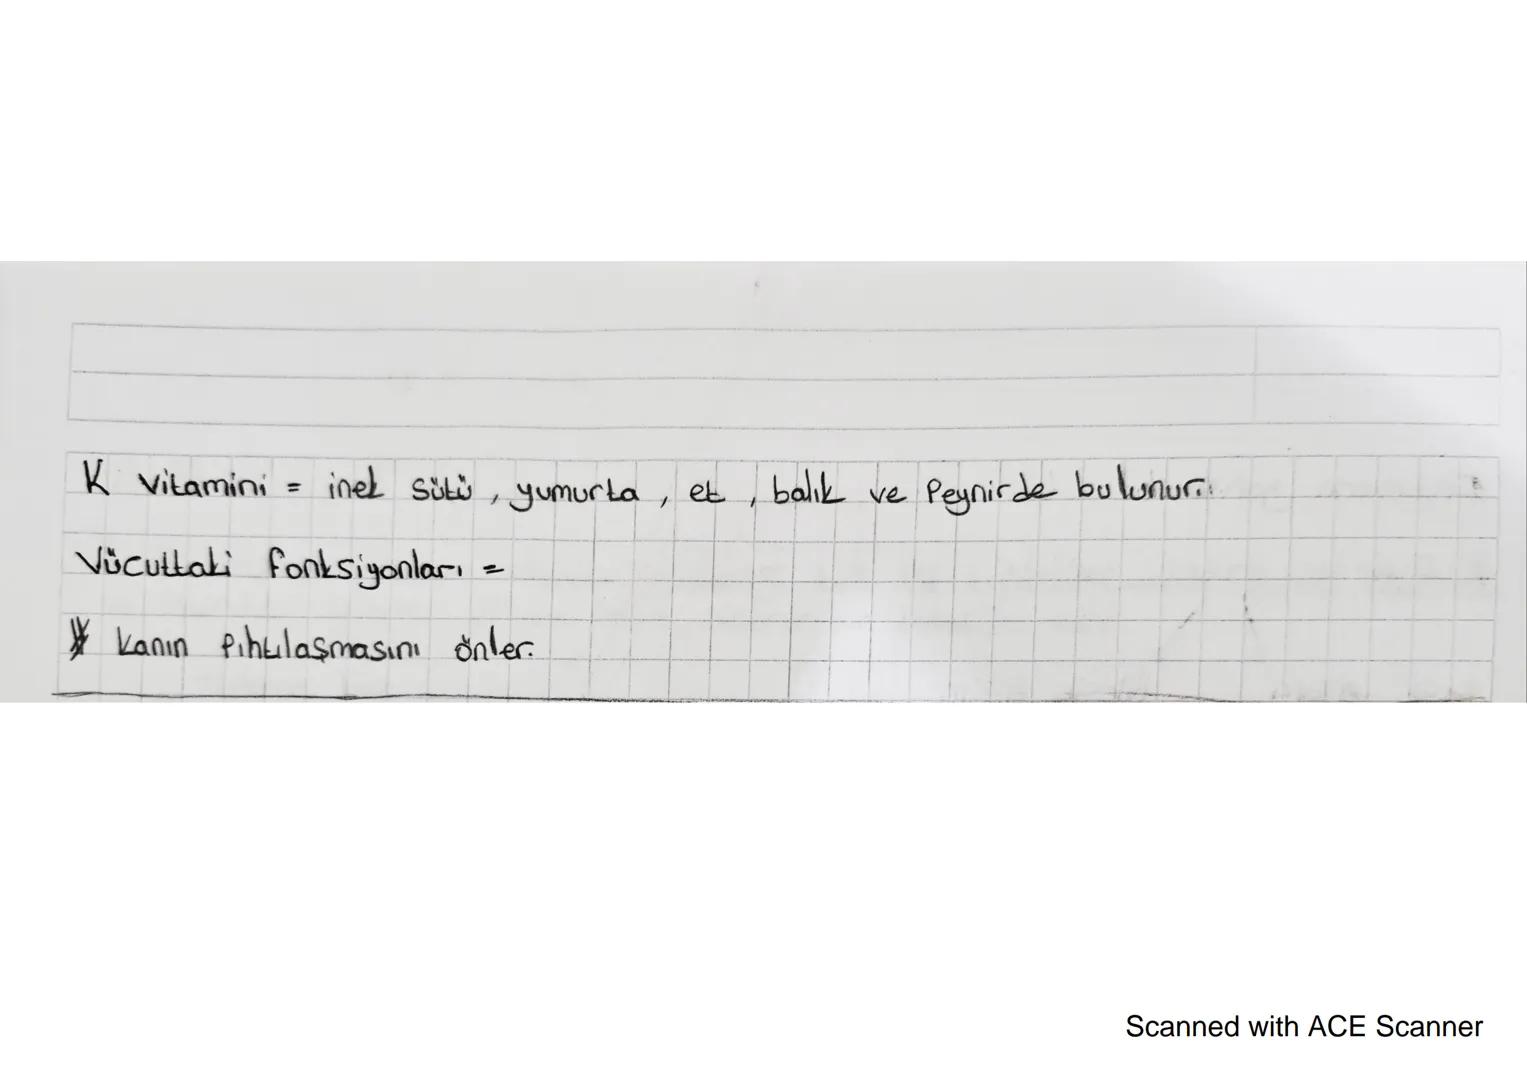 K vitamini = inek sütü, yumurta, et, balık ve Peynirde bulunur.
Vücuttaki fonksiyonları =
* Kanın Pıhtılaşmasını önler.
Scanned with ACE Scanner